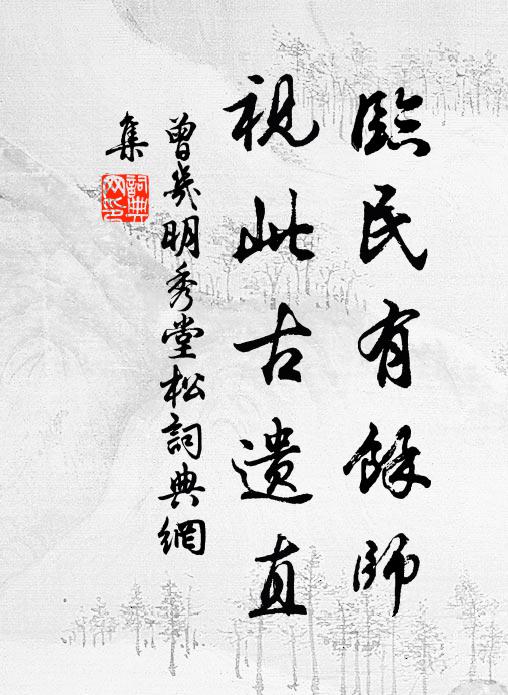 臨民有餘師
視此古遺直
曾幾明秀堂松詞典網
集
詞典網印